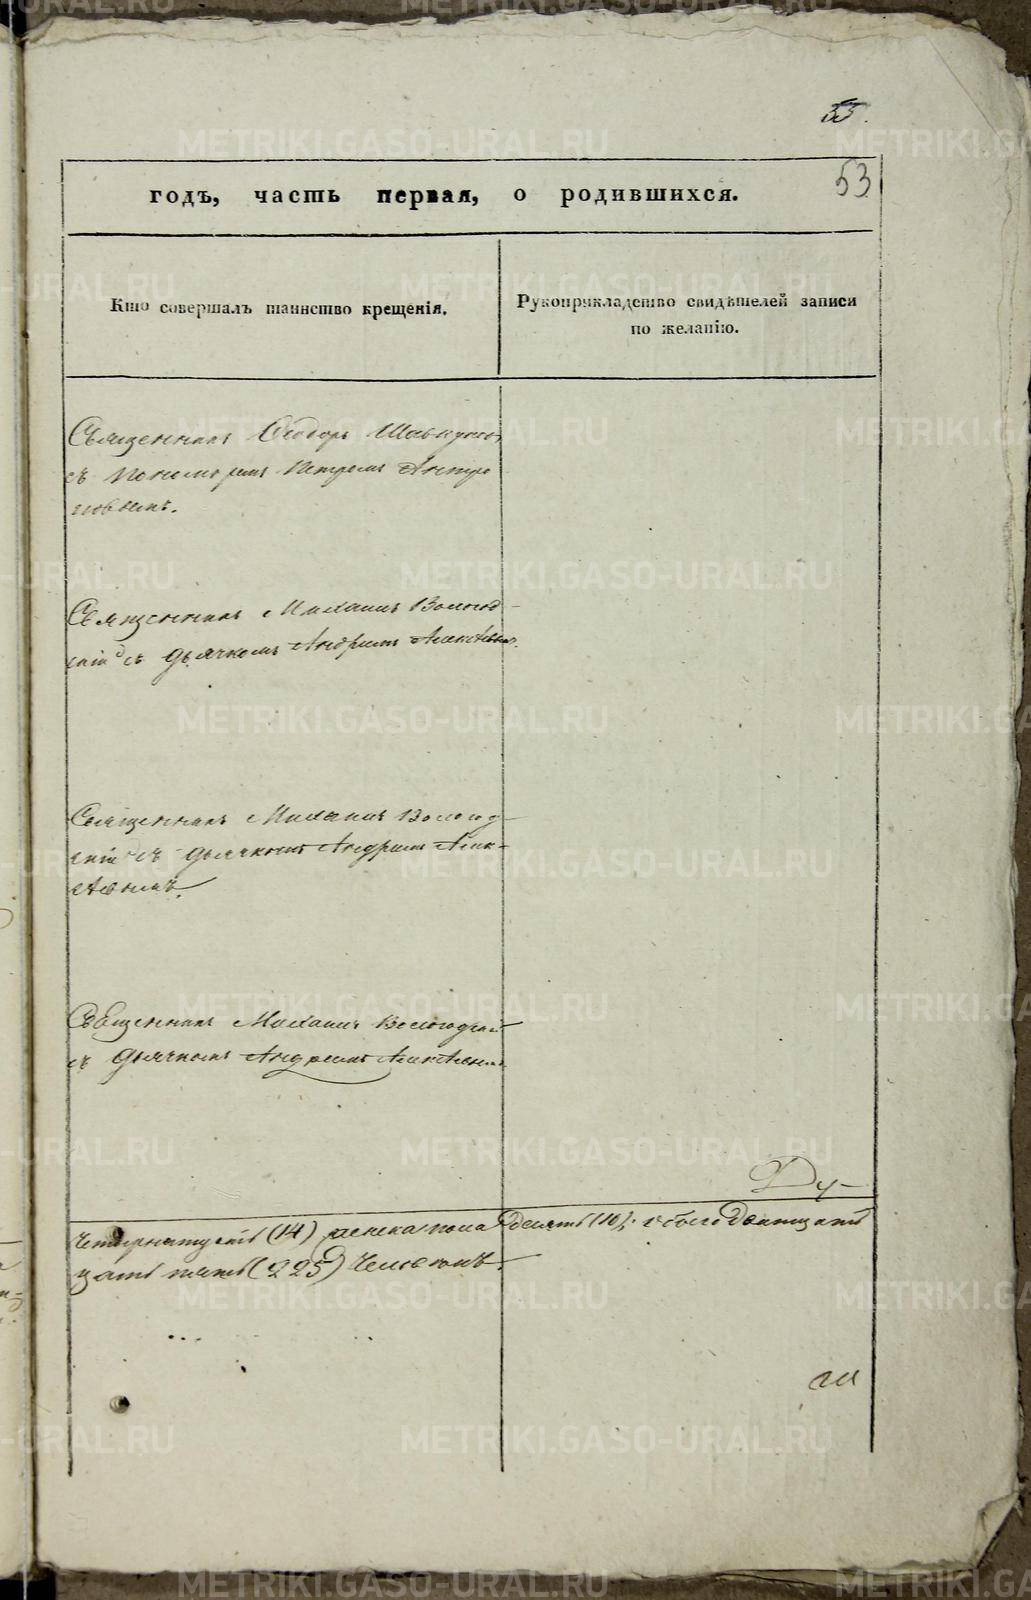 53.
53
годъ, часть первая, о родившихся.
Кто совершалъ таинство крещенія.
Рукоприкладство свидѣтелей записи
по желанію.
Священникъ Ѳеодоръ
съ пономоремъ Петромъ Антро
повымъ.
Священникъ Михаилъ Вологод-
скій съ дьячкомъ Андреемъ Алексѣевымъ.
Священникъ Михаилъ Вологод-
скій съ дьячкомъ Андреемъ Алек-
сѣевымъ.
Священникъ Михаилъ Вологодскій
съ дьячкомъ Андреемъ Алексѣевымъ.
Ду-
четырнатцеть (14) женска пола десять (10), обоего дватцать
цать пять (225) человекъ.
METRIKI.GASO-URAL.RU